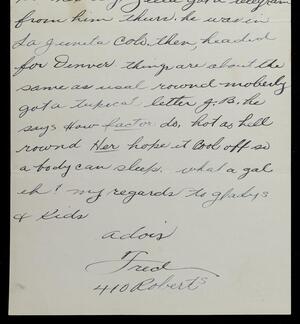 got a telegram
from him thurs. he was in
La Junta Colo. then, headed
for Denver things are about the
same as usual rownd moberly
got a tupical letter J.B. he
says How factor do, hot as hell
rownd Her hope it Cool off so
a body can sleep. what a gal
eh! my regards to gladys
& Kids
adois
Fred
410 Roberts